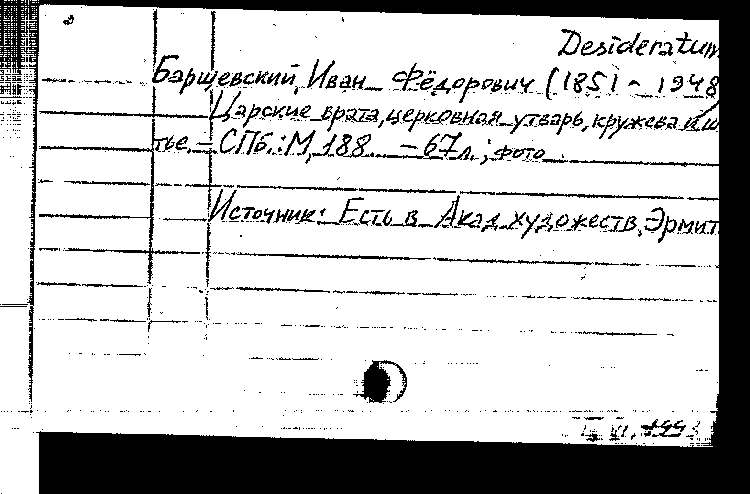 Desideratum
Барщевский, Иван Фёдорович (1851 - 1948
Царские врата, церковная утварь, кружева и ш
тье. - СПб.: М, 188 - 67 л.; фото
Источник: Есть в Акад. художеств, Эрмит
VI. 1993